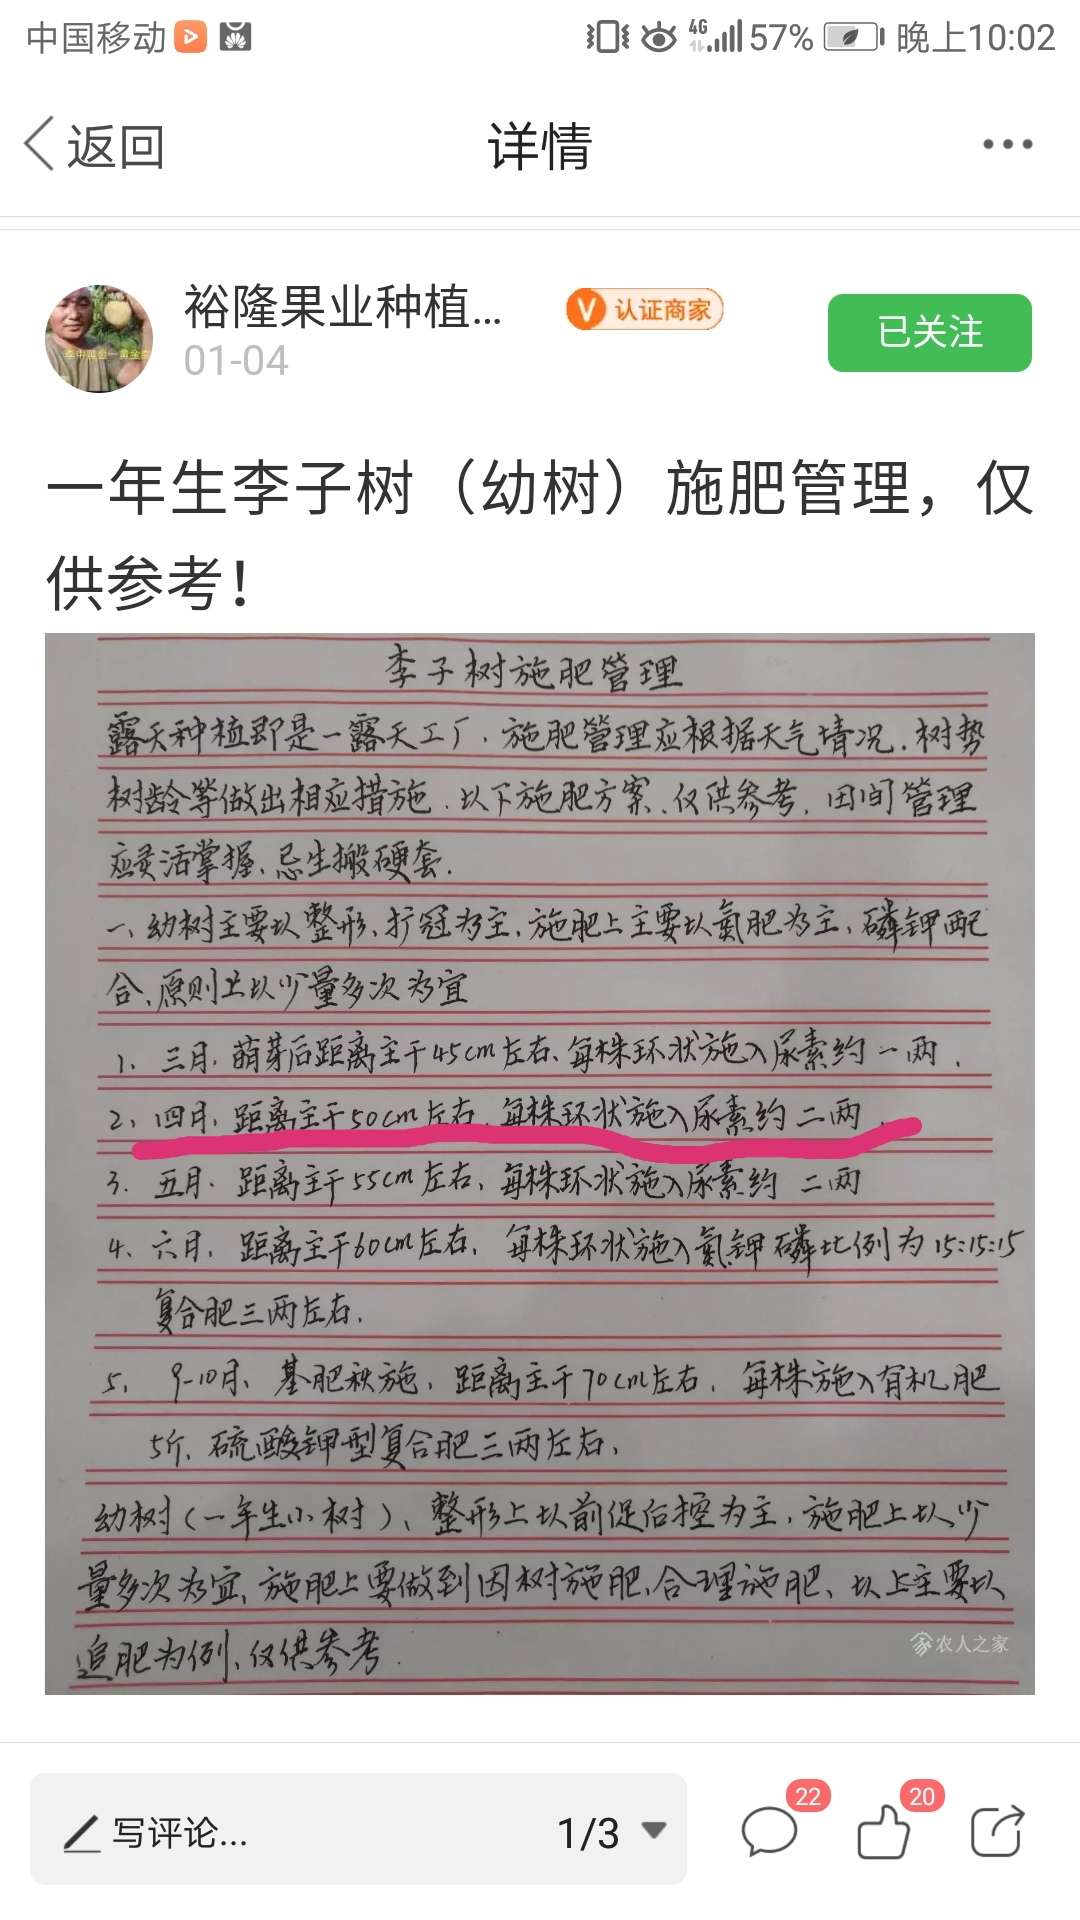 中国移动 4G 57% 晚上10:02
返回 详情
裕隆果业种植... V 认证商家 已关注
01-04
一年生李子树（幼树）施肥管理，仅
供参考！
李子树施肥管理
露天种植即是一露天工厂，施肥管理应根据天气情况，树势
树龄等做出相应措施，以下施肥方案、仅供参考，田间管理
应灵活掌握、忌生搬硬套．
一、幼树主要以整形、扩冠为主，施肥上主要以氮肥为主，磷钾配
合、原则上以少量多次为宜
1、三月，萌芽后距离主干45cm左右、每株环状施入尿素约一两，
2、四月，距离主干50cm左右，每株环状施入尿素约二两．
3．五月．距离主干55cm左右，每株环状施入尿素约 二两
4、六月，距离主干60cm左右，每株环状施入氮钾磷比例为15:15:15
复合肥三两左右，
5、9-10月、基肥秋施，距离主干70cm左右，每株施入有机肥
5斤，硫酸钾型复合肥三两左右、
幼树（一年生小树）、整形上以前促后控为主，施肥上以少
量多次为宜，施肥上要做到因树施肥，合理施肥、以上主要以
追肥为例，仅供参考．
农人之家
写评论... 1/3 22 20